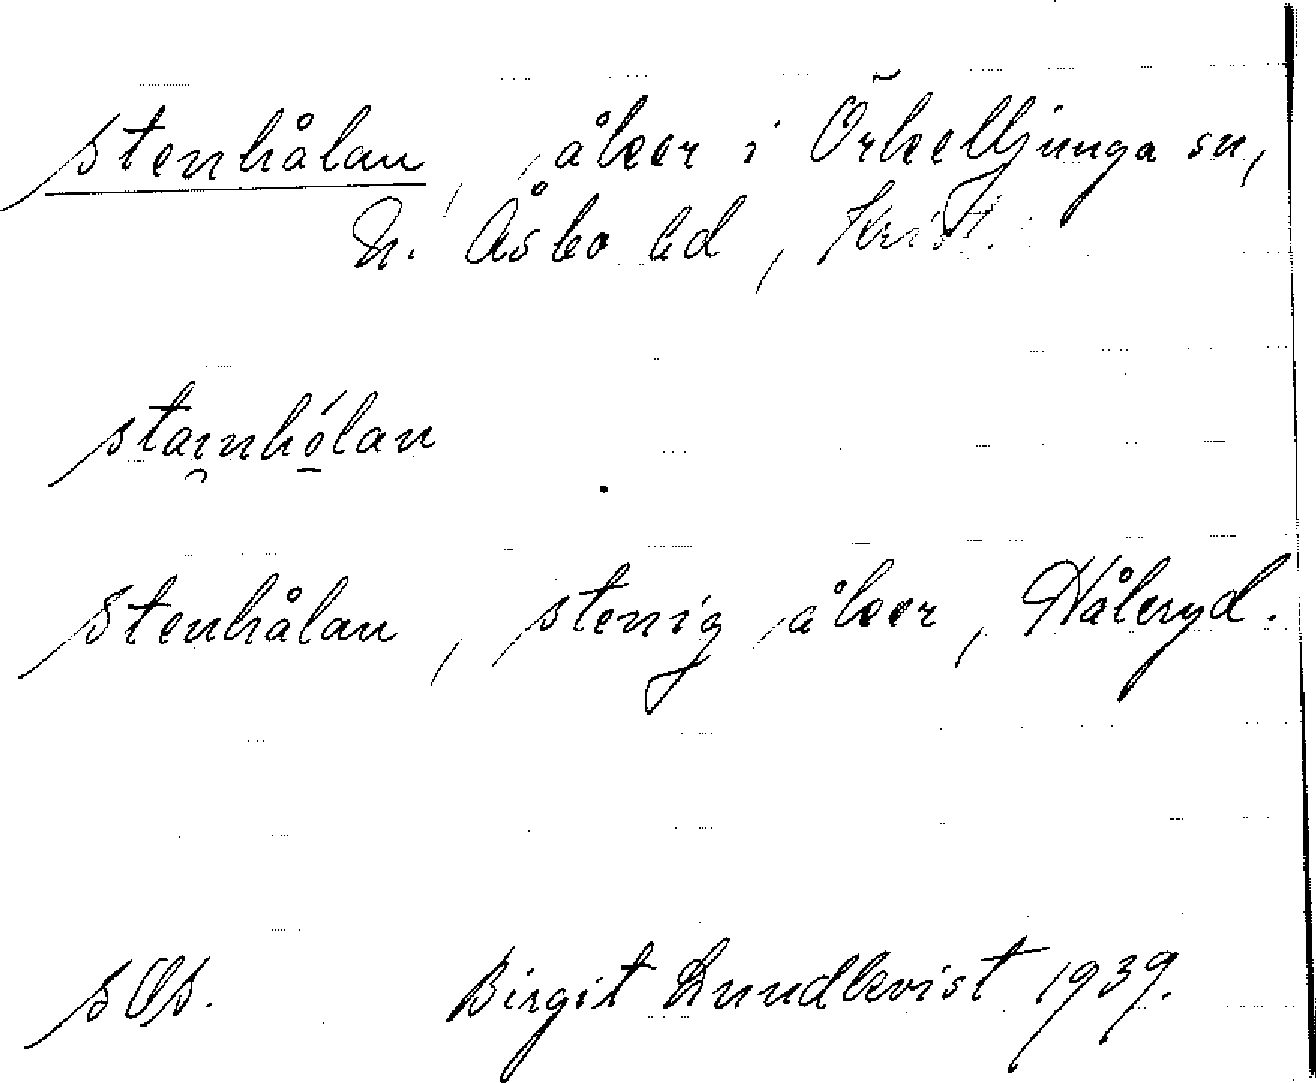 stenhålan, åker i Örkelljunga sn,
N. Åsbo hd, Krist.
sta̯ınhó̱lan
Stenhålan, stenig åker, Håleryd.
Birgit Lundkvist 1939.